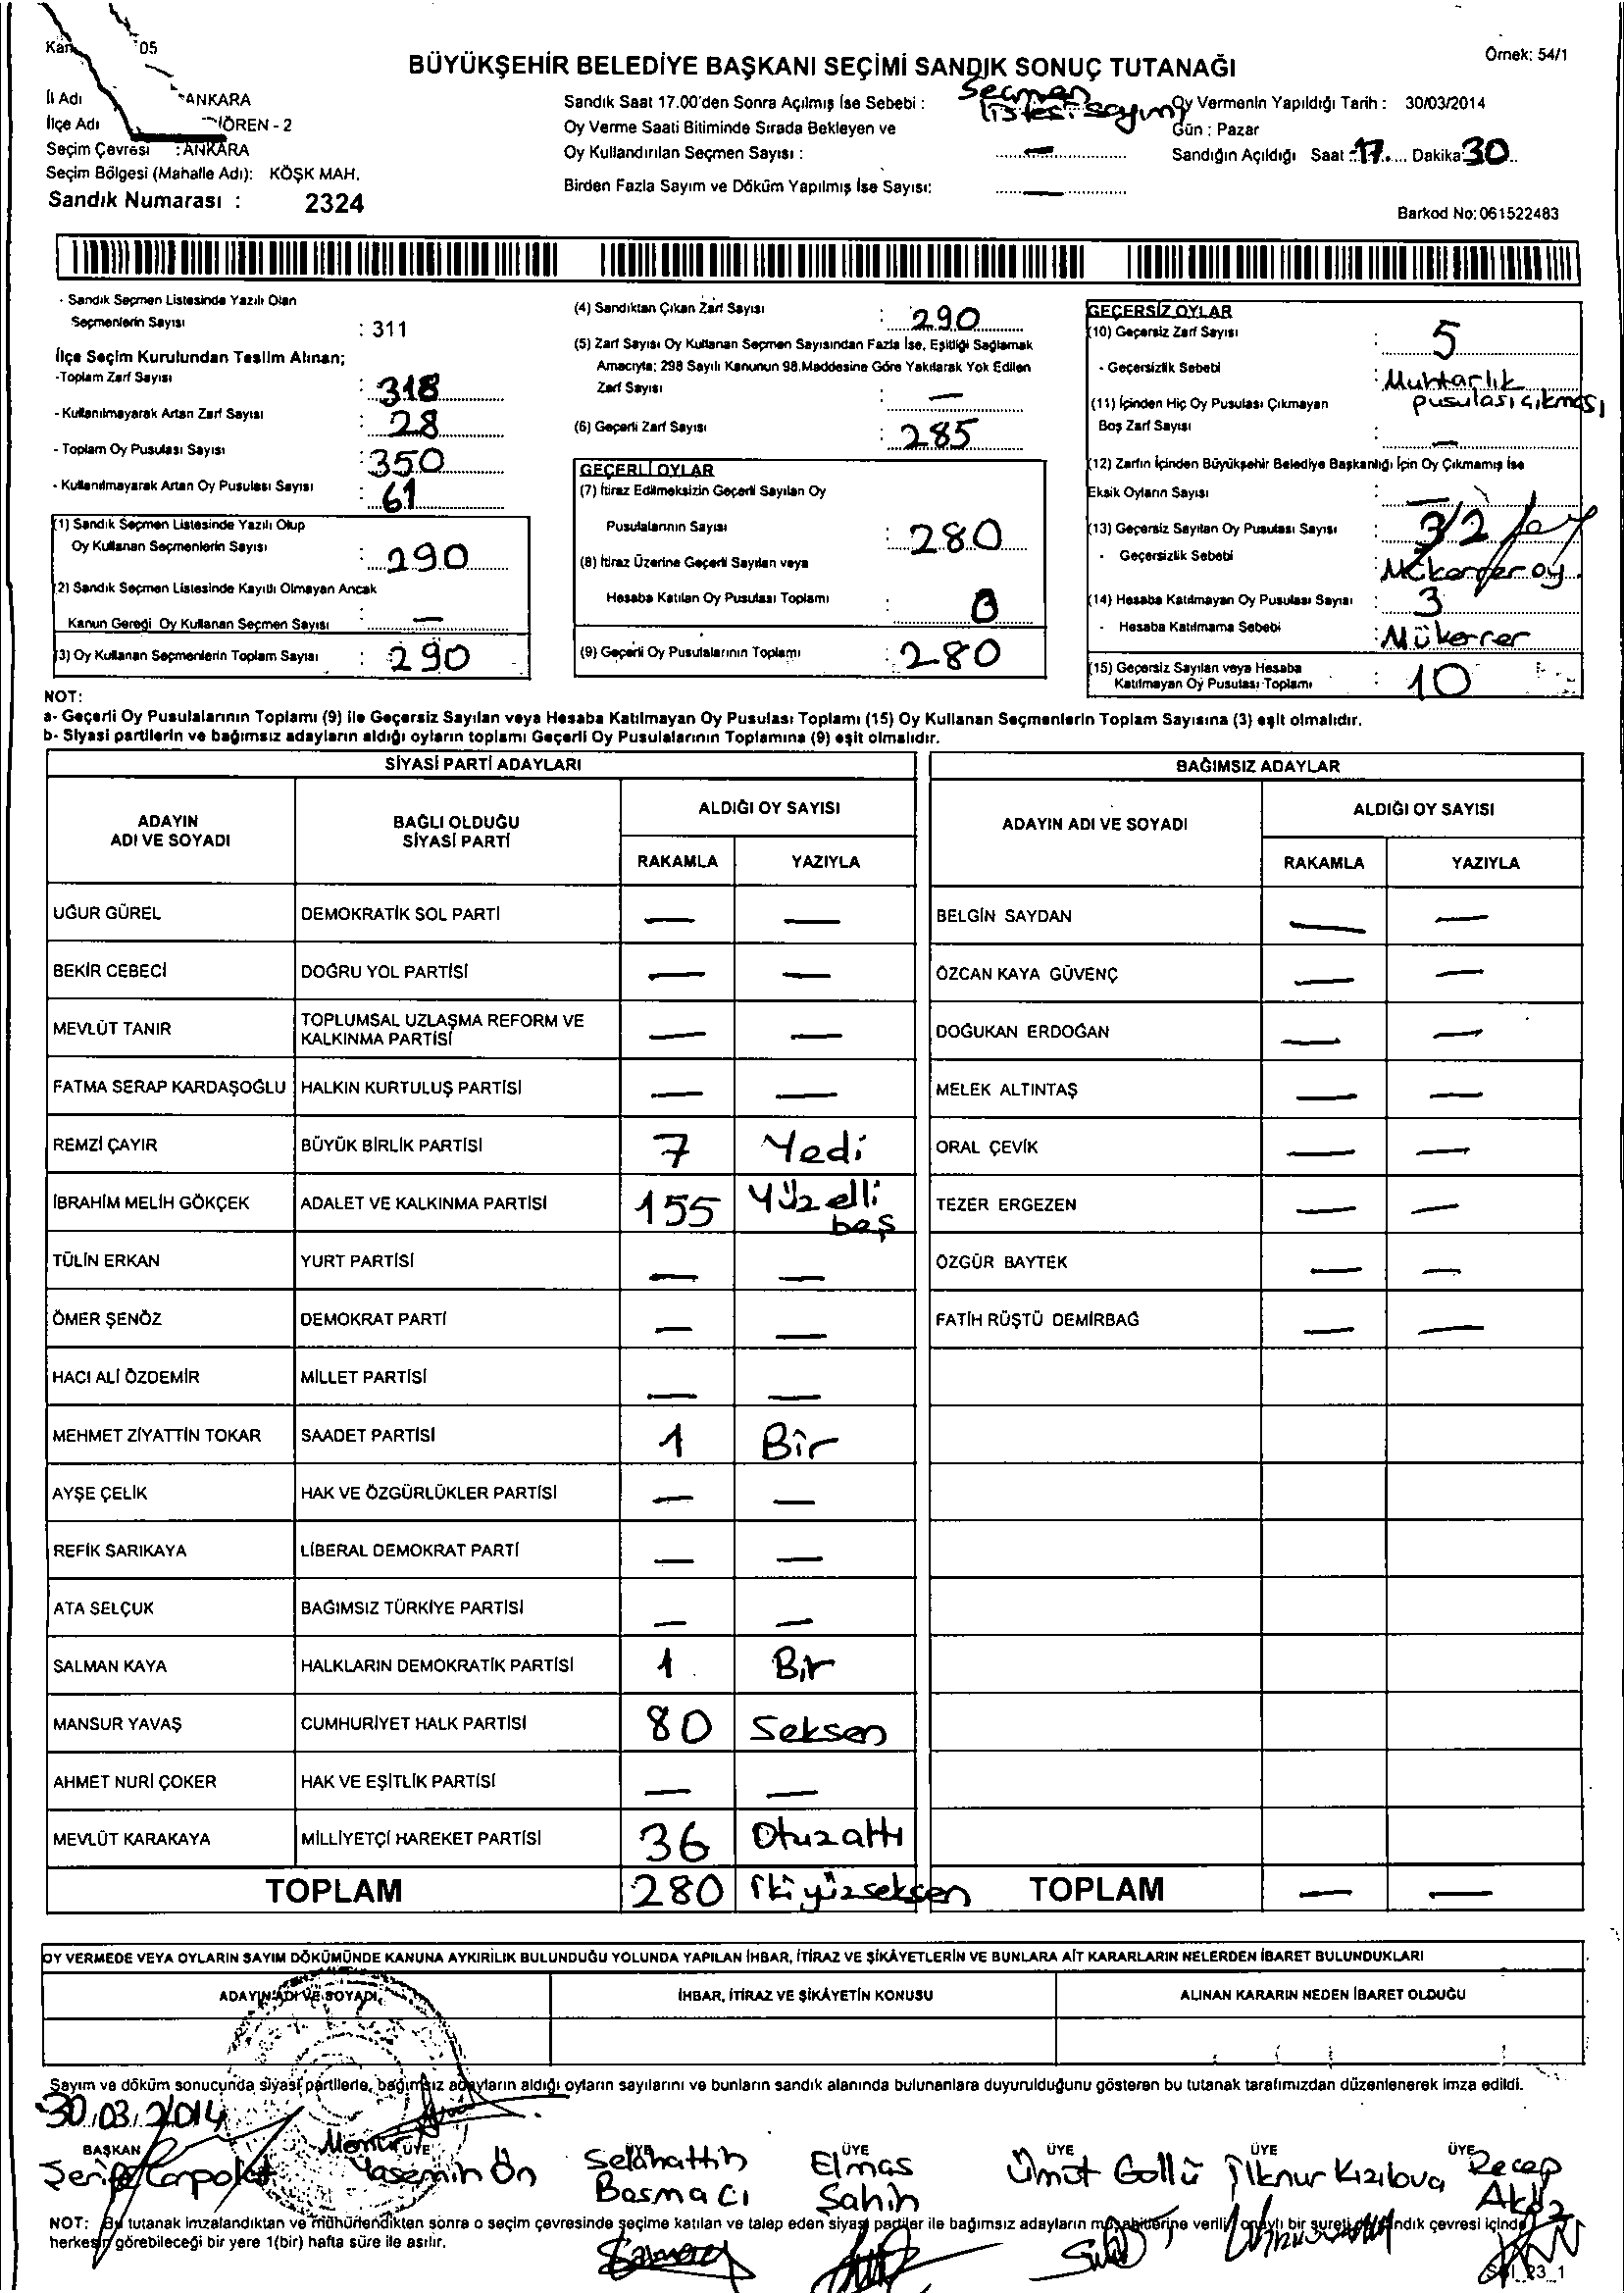 05
Örnek: 54/1
BÜYÜKŞEHİR BELEDİYE BAŞKANI SEÇİMİ SANDIK SONUÇ TUTANAĞI
İl Adı ANKARA
İlçe Adı ÖREN - 2
Seçim Çevresi : ANKARA
Seçim Bölgesi (Mahalle Adı): KÖŞK MAH.
Sandık Numarası : 2324
Sandık Saat 17.00'den Sonra Açılmış İse Sebebi : Seçmen listesi sayımı
Oy Verme Saati Bitiminde Sırada Bekleyen ve
Oy Kullandırılan Seçmen Sayısı : —
Birden Fazla Sayım ve Döküm Yapılmış İse Sayısı: —
Oy Vermenin Yapıldığı Tarih : 30/03/2014
Gün : Pazar
Sandığın Açıldığı Saat : 17 Dakika 30
Barkod No: 061522483
- Sandık Seçmen Listesinde Yazılı Olan
Seçmenlerin Sayısı : 311
İlçe Seçim Kurulundan Teslim Alınan;
-Toplam Zarf Sayısı : 318
- Kullanılmayarak Artan Zarf Sayısı : 28
- Toplam Oy Pusulası Sayısı : 350
- Kullanılmayarak Artan Oy Pusulası Sayısı : 61
(1) Sandık Seçmen Listesinde Yazılı Olup
Oy Kullanan Seçmenlerin Sayısı : 290
(2) Sandık Seçmen Listesinde Kayıtlı Olmayan Ancak
Kanun Gereği Oy Kullanan Seçmen Sayısı : —
(3) Oy Kullanan Seçmenlerin Toplam Sayısı : 290
(4) Sandıktan Çıkan Zarf Sayısı : 290
(5) Zarf Sayısı Oy Kullanan Seçmen Sayısından Fazla İse, Eşitliği Sağlamak
Amacıyla; 298 Sayılı Kanunun 98.Maddesine Göre Yakılarak Yok Edilen
Zarf Sayısı : —
(6) Geçerli Zarf Sayısı : 285
GEÇERLİ OYLAR
(7) İtiraz Edilmeksizin Geçerli Sayılan Oy
Pusulalarının Sayısı : 280
(8) İtiraz Üzerine Geçerli Sayılan veya
Hesaba Katılan Oy Pusulası Toplamı : 0
(9) Geçerli Oy Pusulalarının Toplamı : 280
GEÇERSİZ OYLAR
(10) Geçersiz Zarf Sayısı : 5
- Geçersizlik Sebebi : Muhtarlık
pusulası çıkması
(11) İçinden Hiç Oy Pusulası Çıkmayan
Boş Zarf Sayısı : —
(12) Zarfın İçinden Büyükşehir Belediye Başkanlığı İçin Oy Çıkmamış İse
Eksik Oyların Sayısı : —
(13) Geçersiz Sayılan Oy Pusulası Sayısı : 3/2
- Geçersizlik Sebebi : Mükerrer oy
(14) Hesaba Katılmayan Oy Pusulası Sayısı : 3
- Hesaba Katılmama Sebebi : Mükerrer
(15) Geçersiz Sayılan veya Hesaba
Katılmayan Oy Pusulası Toplamı : 10
NOT:
a- Geçerli Oy Pusulalarının Toplamı (9) ile Geçersiz Sayılan veya Hesaba Katılmayan Oy Pusulası Toplamı (15) Oy Kullanan Seçmenlerin Toplam Sayısına (3) eşit olmalıdır.
b- Siyasi partilerin ve bağımsız adayların aldığı oyların toplamı Geçerli Oy Pusulalarının Toplamına (9) eşit olmalıdır.
SİYASİ PARTİ ADAYLARI
ADAYIN ADI VE SOYADI BAĞLI OLDUĞU SİYASİ PARTİ ALDIĞI OY SAYISI
RAKAMLA YAZIYLA
UĞUR GÜREL DEMOKRATİK SOL PARTİ — —
BEKİR CEBECİ DOĞRU YOL PARTİSİ — —
MEVLÜT TANIR TOPLUMSAL UZLAŞMA REFORM VE KALKINMA PARTİSİ — —
FATMA SERAP KARDAŞOĞLU HALKIN KURTULUŞ PARTİSİ — —
REMZİ ÇAYIR BÜYÜK BİRLİK PARTİSİ 7 Yedi
İBRAHİM MELİH GÖKÇEK ADALET VE KALKINMA PARTİSİ 155 Yüz elli beş
TÜLİN ERKAN YURT PARTİSİ — —
ÖMER ŞENÖZ DEMOKRAT PARTİ — —
HACI ALİ ÖZDEMİR MİLLET PARTİSİ — —
MEHMET ZİYATTİN TOKAR SAADET PARTİSİ 1 Bir
AYŞE ÇELİK HAK VE ÖZGÜRLÜKLER PARTİSİ — —
REFİK SARIKAYA LİBERAL DEMOKRAT PARTİ — —
ATA SELÇUK BAĞIMSIZ TÜRKİYE PARTİSİ — —
SALMAN KAYA HALKLARIN DEMOKRATİK PARTİSİ 1 Bir
MANSUR YAVAŞ CUMHURİYET HALK PARTİSİ 80 Seksen
AHMET NURİ ÇOKER HAK VE EŞİTLİK PARTİSİ — —
MEVLÜT KARAKAYA MİLLİYETÇİ HAREKET PARTİSİ 36 Otuzaltı
TOPLAM 280 ikiyüzseksen
BAĞIMSIZ ADAYLAR
ADAYIN ADI VE SOYADI ALDIĞI OY SAYISI
RAKAMLA YAZIYLA
BELGİN SAYDAN — —
ÖZCAN KAYA GÜVENÇ — —
DOĞUKAN ERDOĞAN — —
MELEK ALTINTAŞ — —
ORAL ÇEVİK — —
TEZER ERGEZEN — —
ÖZGÜR BAYTEK — —
FATİH RÜŞTÜ DEMİRBAĞ — —
TOPLAM — —
OY VERMEDE VEYA OYLARIN SAYIM DÖKÜMÜNDE KANUNA AYKIRILIK BULUNDUĞU YOLUNDA YAPILAN İHBAR, İTİRAZ VE ŞİKÂYETLERİN VE BUNLARA AİT KARARLARIN NELERDEN İBARET BULUNDUKLARI
ADAYIN ADI VE SOYADI İHBAR, İTİRAZ VE ŞİKÂYETİN KONUSU ALINAN KARARIN NEDEN İBARET OLDUĞU
Sayım ve döküm sonucunda siyasi partilerle, bağımsız adayların aldığı oyların sayılarını ve bunların sandık alanında bulunanlara duyurulduğunu gösteren bu tutanak tarafımızdan düzenlenerek imza edildi.
30.03.2014
BAŞKAN ÜYE ÜYE ÜYE ÜYE ÜYE ÜYE
Şerife Memur Yasemin Ön Selahattin Basmacı Elmas Şahin Ümüt Göllü İlknur Kızılova Recep
NOT: Bu tutanak imzalandıktan ve mühürlendikten sonra o seçim çevresinde seçime katılan ve talep eden siyasi partiler ile bağımsız adayların müşahitlerine verilir, onaylı bir sureti sandık çevresi içinde
herkesin görebileceği bir yere 1(bir) hafta süre ile asılır.
23_1